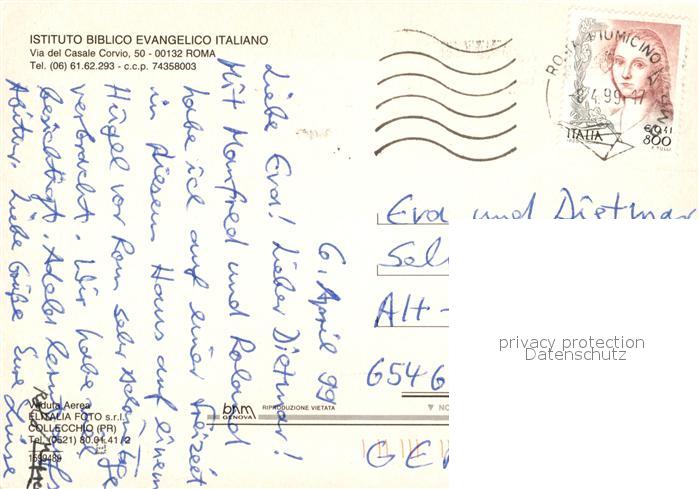 ISTITUTO BIBLICO EVANGELICO ITALIANO
Via del Casale Corvio, 50 - 00132 ROMA
Tel. (06) 61.62.293 - c.c.p. 74358003
ROMA FIUMICINO
8.4.99-17
ITALIA
€0,41
800
6. April 99
Liebe Eva! Lieber Dietmar!
Mit Manfred und Roland
habe ich auf einer Freizeit
in diesem Haus auf einem
Hügel vor Rom sehr schöne Tage
verbracht. Wir haben
besichtigt. Adele lernt fürs
Abitur. Liebe Grüße Eure Luise
Eva und Dietmar
Alt-
6546
GE
privacy protection
Datenschutz
Veduta Aerea
ELITALIA FOTO s.r.l.
COLLECCHIO (PR)
Tel. (0521) 80.41.41/2
1590489
bnm
GENOVA
RIPRODUZIONE VIETATA